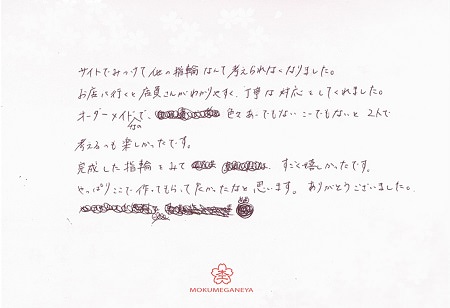 サイトでみつけて他の指輪なんて考えられなくなりました。
お店に行くと店員さんがわかりやすく、丁寧な対応をしてくれました。
オーダーメイドなので、色々あーでもないこーでもないと2人で
考えるのも楽しかったです。
完成した指輪をみて すごく嬉しかったです。
やっぱりここで作ってもらってよかったなと思います。ありがとうございました。
MOKUMEGANEYA